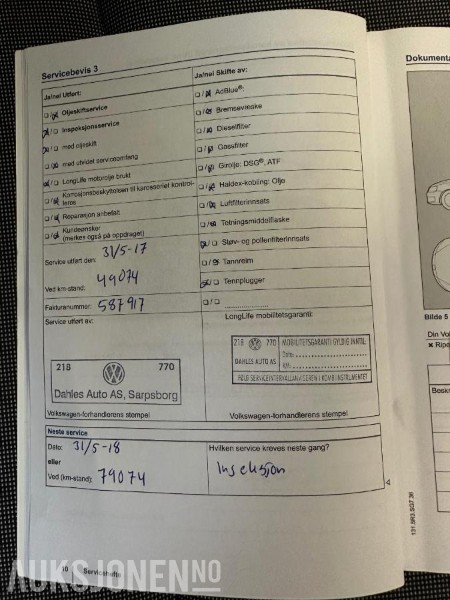 Servicebevis 3
Dokumenta
Ja/nei Utført:
Ja/nei Skifte av:
Oljeskiftservice
Inspeksjonsservice
med oljeskift
med utvidet serviceomfang
LongLife motorolje brukt
Korrosjonsbeskyttelsen til karosseriet kontrol-
leres
Reparasjon anbefalt
Kundeønsker
(merkes også på oppdraget)
Service utført den: 31/5-17
Ved km-stand: 49074
Fakturanummer: 587917
Service utført av:
AdBlue®:
Bremsevæske
Dieselfilter
Gassfilter
Girolje: DSG®, ATF
Haldex-kobling: Olje
Luftfilterinnsats
Tetningsmiddelflaske
Støv- og pollenfilterinnsats
Tannreim
Tennplugger
LongLife mobilitetsgaranti:
218 770
Dahles Auto AS, Sarpsborg
Volkswagen-forhandlerens stempel
218 770
DAHLES AUTO AS
MOBILITETSGARANTI GYLDIG INNTIL:
Dato
KM
FØLG SERVICEINTERVALLANVISEREN I KOMBIINSTRUMENTET
Volkswagen-forhandlerens stempel
Neste service
Dato: 31/5-18
eller
Ved (km-stand): 79074
Hvilken service kreves neste gang?
Inspeksjon
10 Servicehefte
Bilde 5
Din Vol
Ripe
Beskr
131.5R3.SG7.36
AUKSJONEN.NO